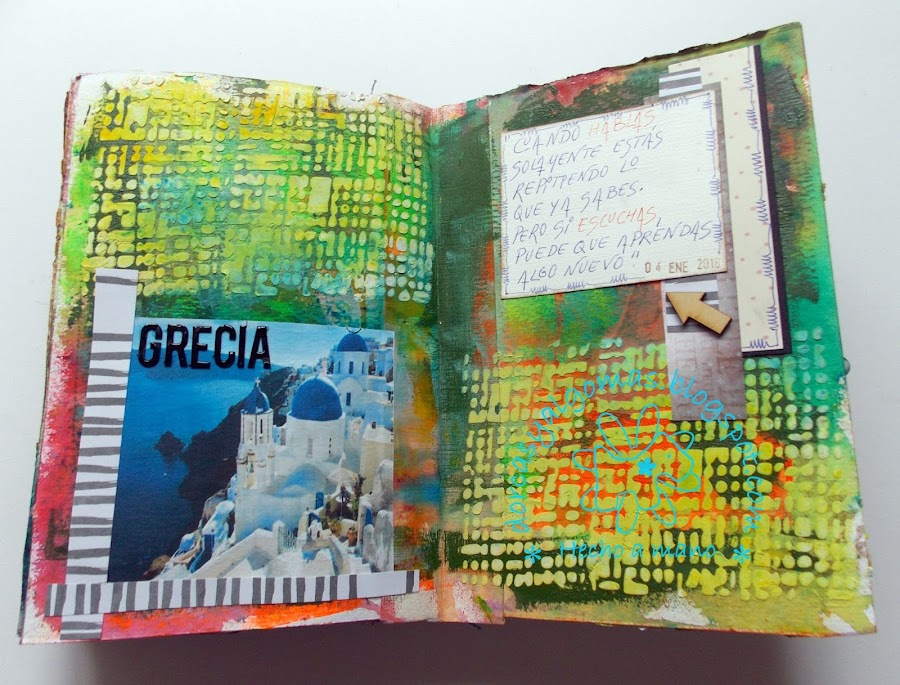 GRECIA
CUANDO HABLAS
SOLAMENTE ESTÁS
REPITIENDO LO
QUE YA SABES.
PERO SI ESCUCHAS,
PUEDE QUE APRENDAS
ALGO NUEVO"
04 ENE 2018
* Hecho a mano *